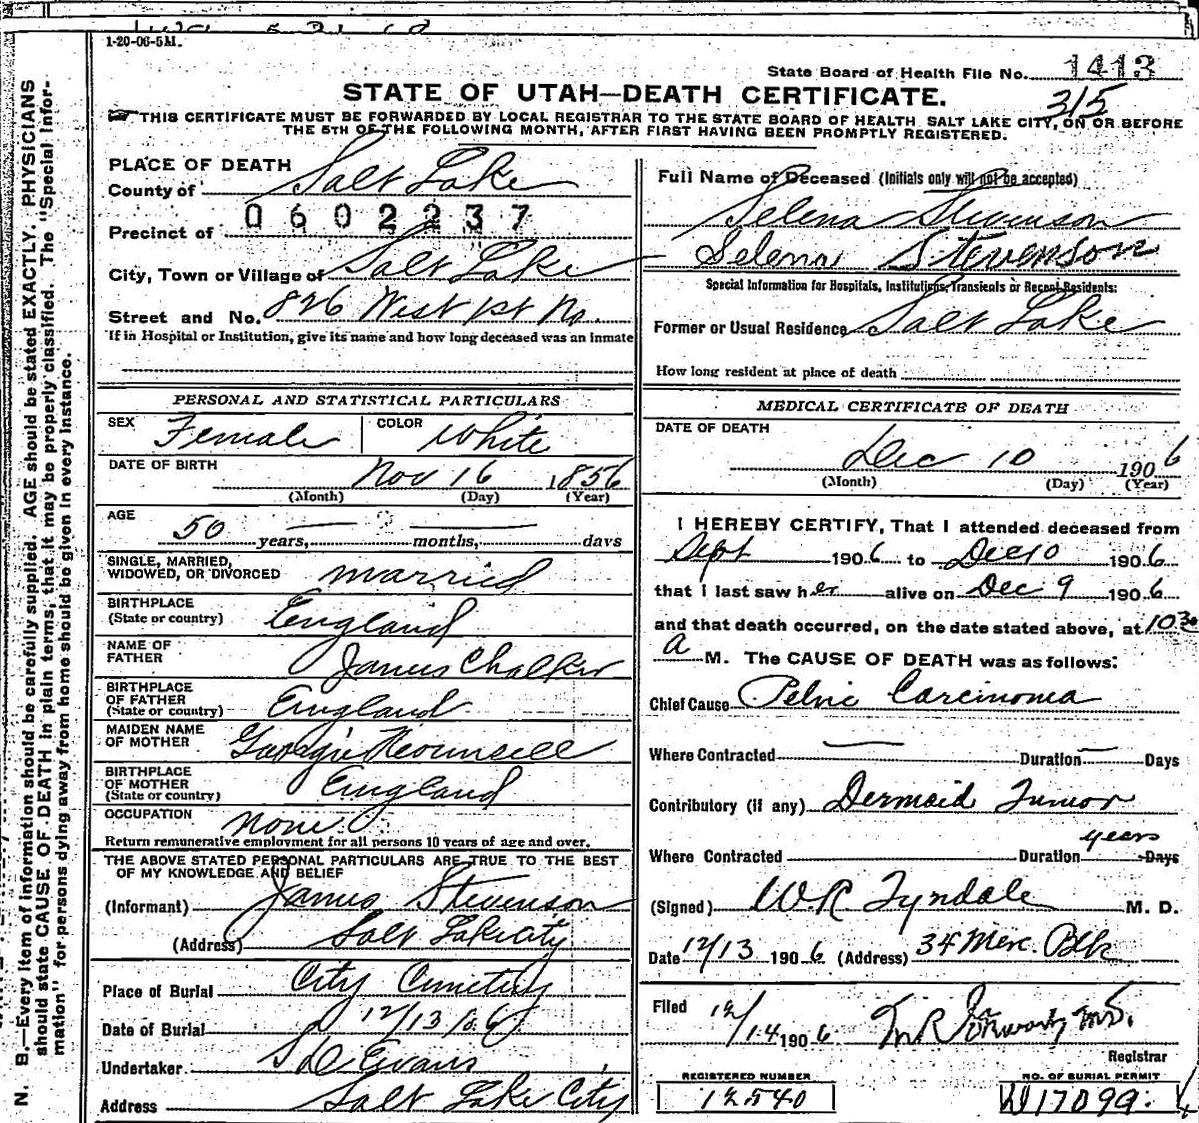 1-20-06-5M.
State Board of Health File No. 1413
STATE OF UTAH—DEATH CERTIFICATE.
315
THIS CERTIFICATE MUST BE FORWARDED BY LOCAL REGISTRAR TO THE STATE BOARD OF HEALTH, SALT LAKE CITY, ON OR BEFORE
THE 5TH OF THE FOLLOWING MONTH, AFTER FIRST HAVING BEEN PROMPTLY REGISTERED.
PLACE OF DEATH
County of Salt Lake
0602237
Precinct of
City, Town or Village of Salt Lake
Street and No. 826 West 1st No.
If in Hospital or Institution, give its name and how long deceased was an inmate
Full Name of Deceased (Initials only will not be accepted)
Selena Stevenson
Selena Stevenson
Special Information for Hospitals, Institutions, Transients or Recent Residents:
Former or Usual Residence Salt Lake
How long resident at place of death
PERSONAL AND STATISTICAL PARTICULARS
SEX Female COLOR White
DATE OF BIRTH Nov 16 1856
(Month) (Day) (Year)
AGE
50 years, — months, — days
SINGLE, MARRIED,
WIDOWED, OR DIVORCED married
BIRTHPLACE
(State or country) England
NAME OF
FATHER James Chalker
BIRTHPLACE
OF FATHER
(State or country) England
MAIDEN NAME
OF MOTHER
BIRTHPLACE
OF MOTHER
(State or country) England
OCCUPATION none
Return remunerative employment for all persons 10 years of age and over.
THE ABOVE STATED PERSONAL PARTICULARS ARE TRUE TO THE BEST
OF MY KNOWLEDGE AND BELIEF
(Informant) James Stevenson
(Address) Salt Lake City
Place of Burial City Cemetery
Date of Burial 12/13/06
Undertaker S D Evans
Address Salt Lake City
MEDICAL CERTIFICATE OF DEATH
DATE OF DEATH
Dec 10 1906
(Month) (Day) (Year)
I HEREBY CERTIFY, That I attended deceased from
Sept 1906 to Dec 10 1906
that I last saw her alive on Dec 9 1906
and that death occurred, on the date stated above, at 10 30
a M. The CAUSE OF DEATH was as follows:
Chief Cause Pelvic Carcinoma
Where Contracted — Duration — Days
Contributory (if any) Dermoid Tumor
years
Where Contracted Duration Days
(Signed) W.R. Tyndale M. D.
Date 12/13 1906 (Address) 34 Merc. Blk
Filed 12/14 1906 M.D.
Registrar
REGISTERED NUMBER
12540
NO. OF BURIAL PERMIT
17099
N. B.—Every item of information should be carefully supplied. AGE should be stated EXACTLY. PHYSICIANS
should state CAUSE OF DEATH in plain terms, that it may be properly classified. The "Special Infor-
mation" for persons dying away from home should be given in every instance.